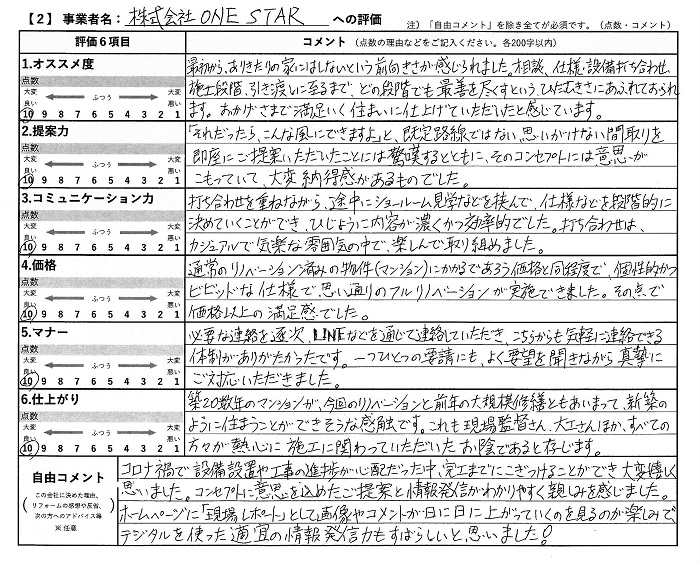 【2】事業者名： 株式会社 ONE STAR への評価 注）「自由コメント」を除き全てが必須です。（点数・コメント）
評価6項目 コメント（点数の理由などをご記入ください。各200字以内）
1.オススメ度
点数
大変良い ふつう 大変悪い
10 9 8 7 6 5 4 3 2 1
最初から、ありきたりの家にはしないという前向きさが感じられました。相談、仕様・設備打ち合わせ
施工段階、引き渡しに至るまで、どの段階でも最善を尽すという、ひたむきさにあふれておられ
ます。おかげさまで満足いく住まいに仕上げていただいたと感じています。
2.提案力
点数
大変良い ふつう 大変悪い
10 9 8 7 6 5 4 3 2 1
「それだったら、こんな風にできますよ」と、既定路線ではない、思いがけない間取りを
即座にご提案いただいたことには驚嘆するとともに、そのコンセプトには意思が
こもっていて、大変納得感があるものでした。
3.コミュニケーション力
点数
大変良い ふつう 大変悪い
10 9 8 7 6 5 4 3 2 1
打ち合わせを重ねながら、途中にショールーム見学などを挟んで、仕様などを段階的に
決めていくことができ、ひじょうに内容が濃くかつ効率的でした。打ち合わせは、
カジュアルで気楽な雰囲気の中で、楽しんで取り組めました。
4.価格
点数
大変良い ふつう 大変悪い
10 9 8 7 6 5 4 3 2 1
通常のリノベーション済みの物件（マンション）にかかるであろう価格と同程度で、個性的かつ
ビビッドな仕様で思い通りのフルリノベーションが実施できました。その点で
価格以上の満足感でした。
5.マナー
点数
大変良い ふつう 大変悪い
10 9 8 7 6 5 4 3 2 1
必要な連絡を逐次、LINEなどを通じて連絡していただき、こちらからも気軽に連絡できる
体制がありがたかったです。一つひとつの要請にも、よく要望を聞きながら真摯に
ご対応いただきました。
6.仕上がり
点数
大変良い ふつう 大変悪い
10 9 8 7 6 5 4 3 2 1
築20数年のマンションが、今回のリノベーションと前年の大規模修繕ともあいまって、新築の
ように住まうことができそうな感触です。これも現場監督さん、大工さんほか、すべての
方々が熱心に施工に関わっていただいたお陰であると存じます。
自由コメント
（この会社に決めた理由、
リフォームの感想や反省、
次の方へのアドバイス等）
※ 任意
コロナ禍で設備設置や工事の進捗が心配だった中、完工までにこぎつけることができ大変嬉しく
思いました。コンセプトに意思を込めたご提案と情報発信がわかりやすく親しみを感じました。
ホームページに「現場レポート」として画像やコメントが日に日に上がっていくのを見るのが楽しみで
デジタルを使った適宜の情報発信力もすばらしいと思いました！